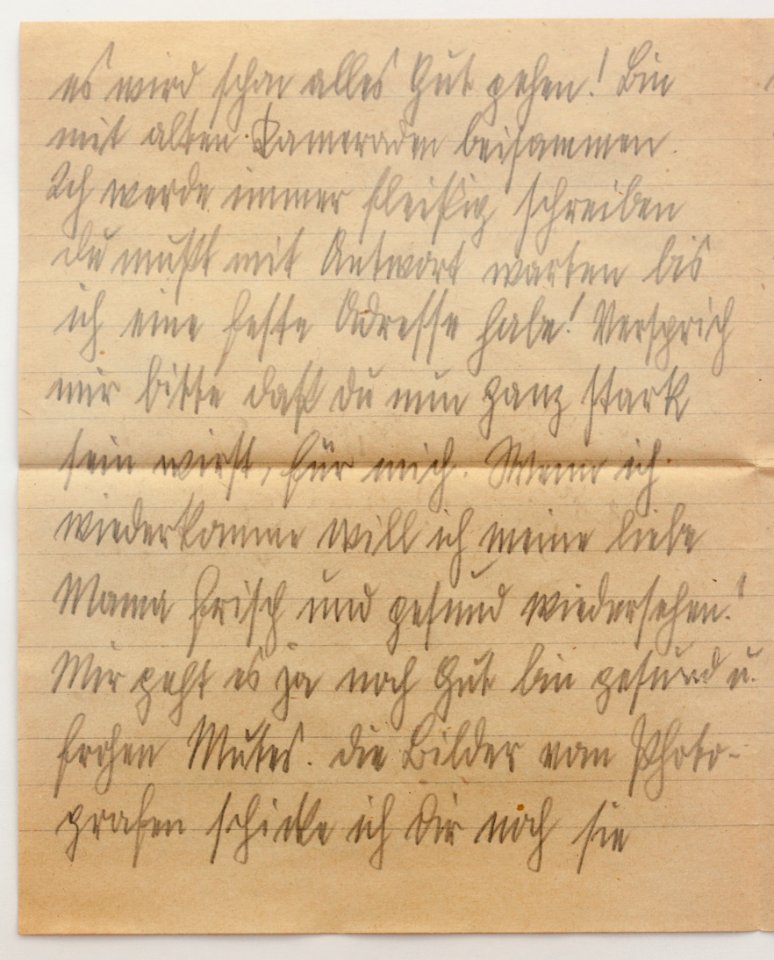 es wird schon alles Gut gehen! Bin
mit alten Kameraden beisammen.
Ich werde immer fleißig schreiben
du mußt mit Antwort warten bis
ich eine feste Adresse habe! Versprich
mir bitte daß du nun ganz stark
sein wirst, für mich. Wenn ich
wiederkomme will ich meine liebe
Mama frisch und gesund wiedersehen!
Mir geht es ja noch Gut bin gesund u.
frohen Mutes. die Bilder vom Photo-
grafen schicke ich Dir noch sie